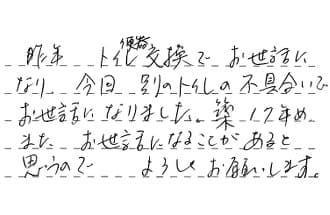 昨年 トイレ便器交換で お世話に
なり、今回 別のトイレの不具合いで
お世話になりました。築17年め
また お世話になることがあると
思うので よろしくお願いします。